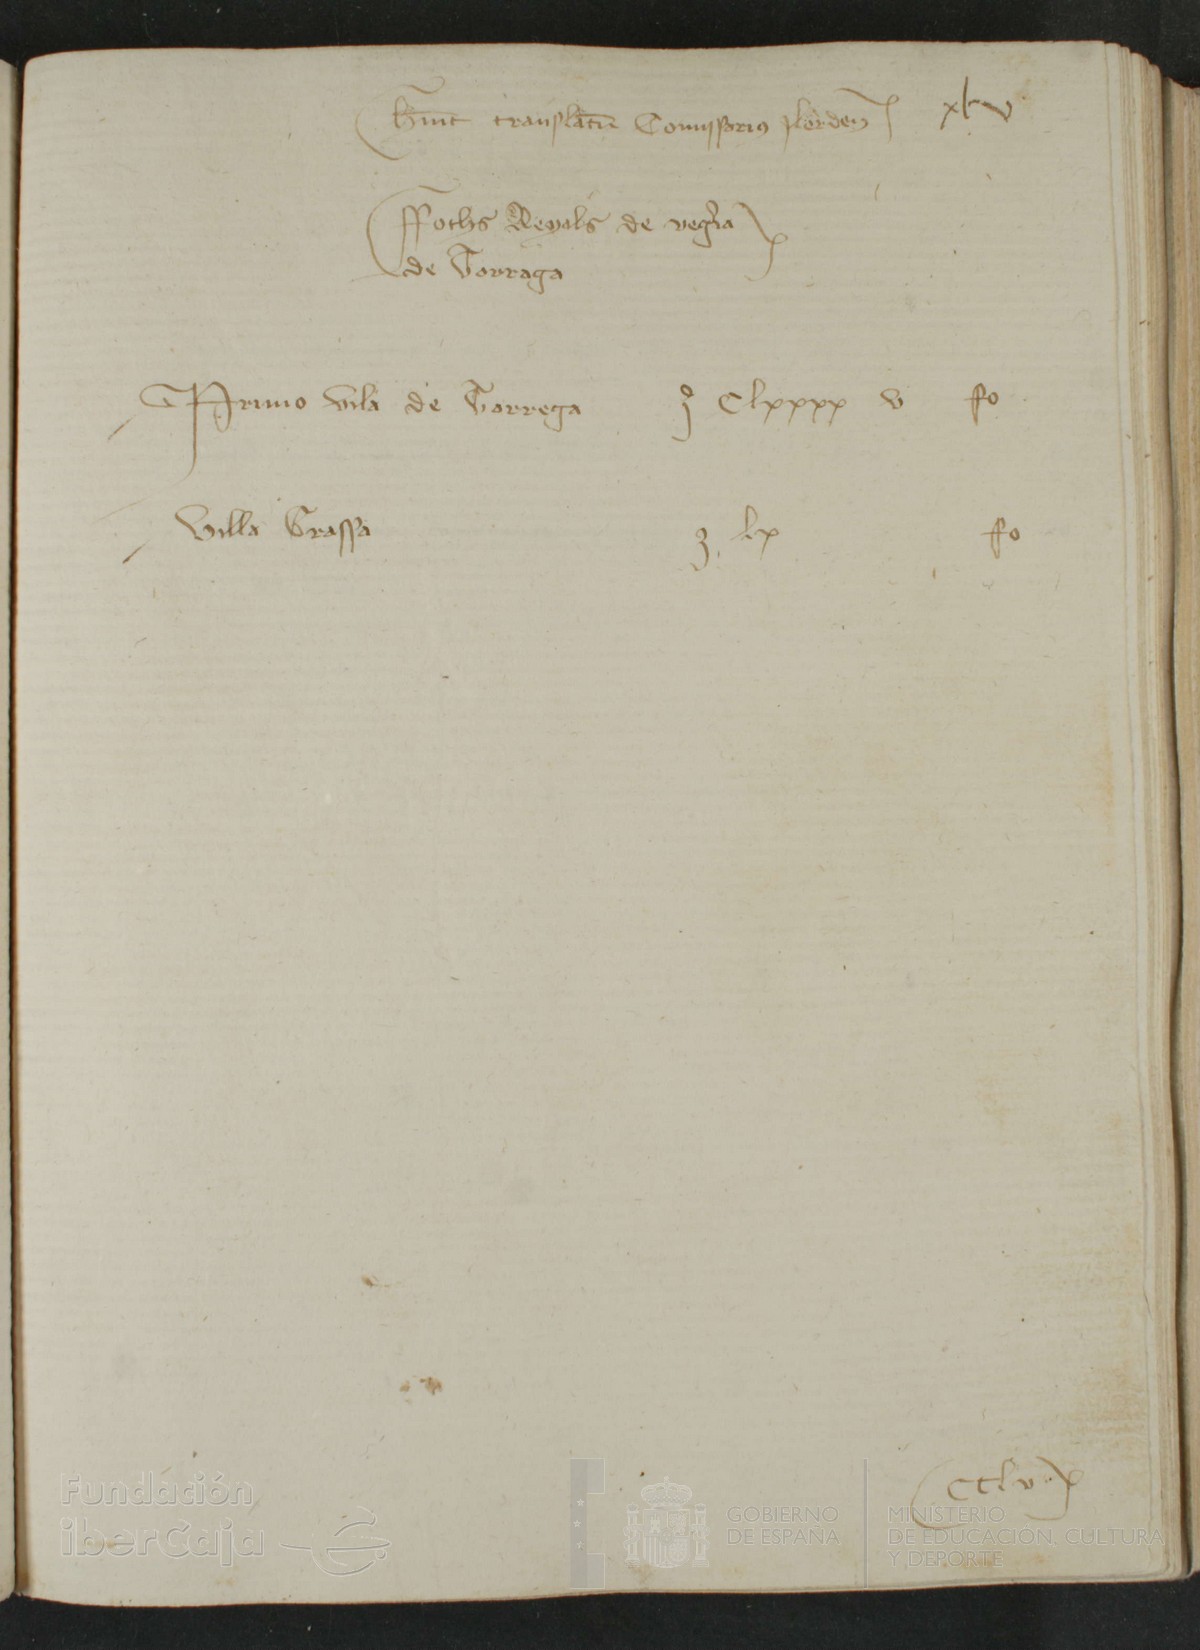 hunt translatum Comissarius Ilerden xlv
ffochs Reyals de vegria
de Tarraga
Primo vila de Tarrega Clxxxx v fo
Villa Grassa lx fo
CClv
Fundación
iberCaja
GOBIERNO
DE ESPAÑA
MINISTERIO
DE EDUCACIÓN, CULTURA
Y DEPORTE